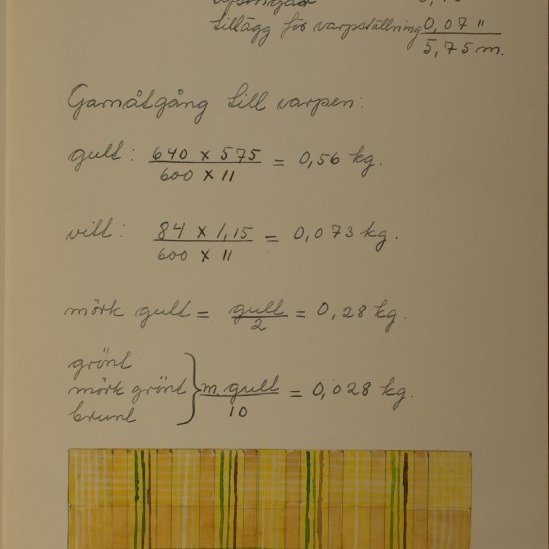 tillägg för varpställning 0,07 "
5,75 m.
Garnåtgång till varpen:
gult: 640 x 575 / 600 x 11 = 0,56 kg.
vitt: 84 x 1,15 / 600 x 11 = 0,073 kg.
mörk gult = gult / 2 = 0,28 kg.
grönt
mörk grönt } m. gult / 10 = 0,028 kg.
brunt